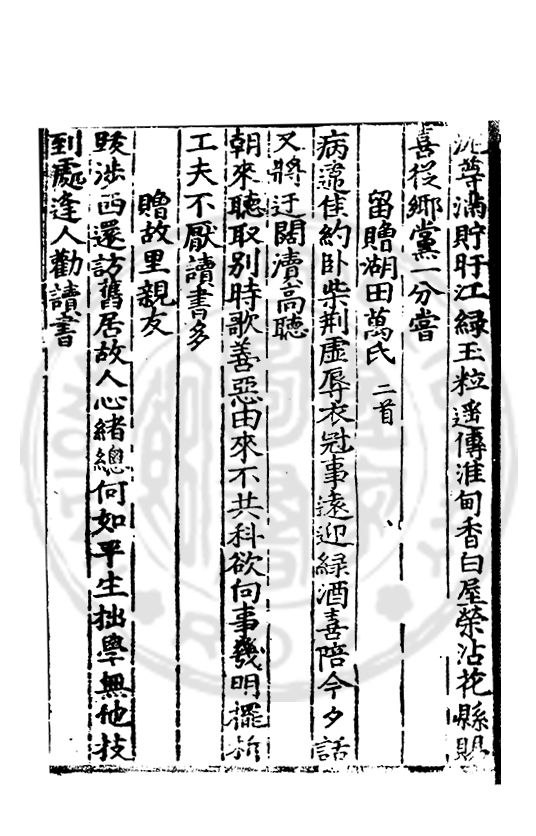 尊滿貯盱江綠玉粒遥傳淮甸香白屋榮沾花縣賜
喜從鄉黨一分嘗
留贈湖田萬氏二首
病違佳約卧柴荆虛辱衣冠事遠迎綠酒喜陪今夕話
又將迂闊瀆高聽
朝來聽取别時歌善惡由來不共科欲向事幾明擺析
工夫不厭讀書多
贈故里親友
跋涉西還訪舊居故人心緒總何如平生拙學無他技
到處逢人勸讀書